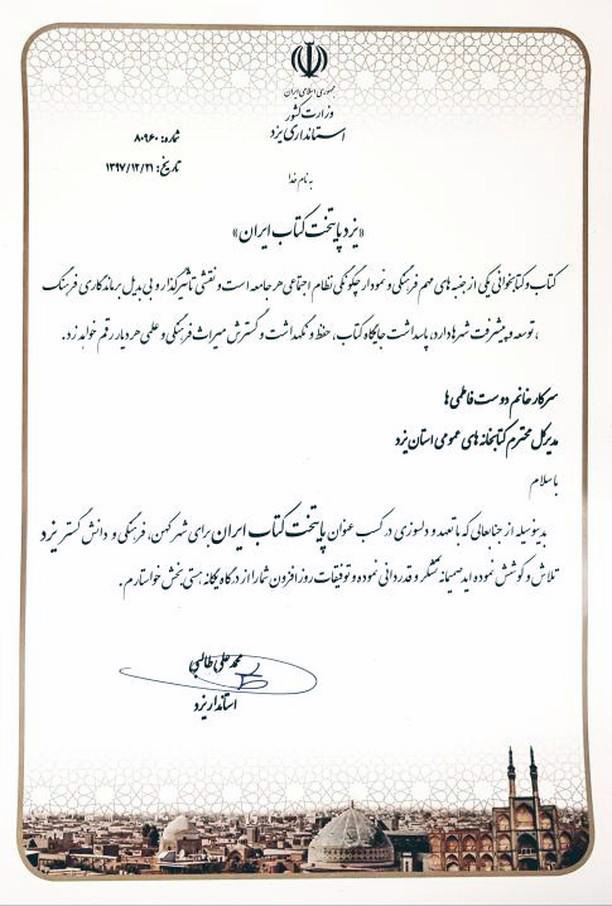 جمهوری اسلامی ایران
وزارت کشور
استانداری یزد
شماره: ۸۰۹۶۰
تاریخ: ۱۳۹۷/۱۲/۲۱
به نام خدا
«یزد پایتخت کتاب ایران»
کتاب و کتابخوانی یکی از جنبه های مهم فرهنگی و نمودار چگونگی نظام اجتماعی هر جامعه است و نقشی تأثیرگذار و بی بدیل بر ماندگاری فرهنگ
، توسعه و پیشرفت شهرها دارد، پاسداشت جایگاه کتاب، حفظ و نگهداشت و گسترش میراث فرهنگی و علمی هر دیار رقم خواهد زد.
سرکار خانم دوست فاطمی ها
مدیرکل محترم کتابخانه های عمومی استان یزد
با سلام
بدینوسیله از جنابعالی که با تعهد و دلسوزی در کسب عنوان پایتخت کتاب ایران برای شهر کهن، فرهنگی و دانش گستر یزد
تلاش و کوشش نموده اید صمیمانه تشکر و قدردانی نموده و توفیقات روزافزون شما را از درگاه یگانه هستی بخش خواستارم.
محمدعلی طالبی
استاندار یزد